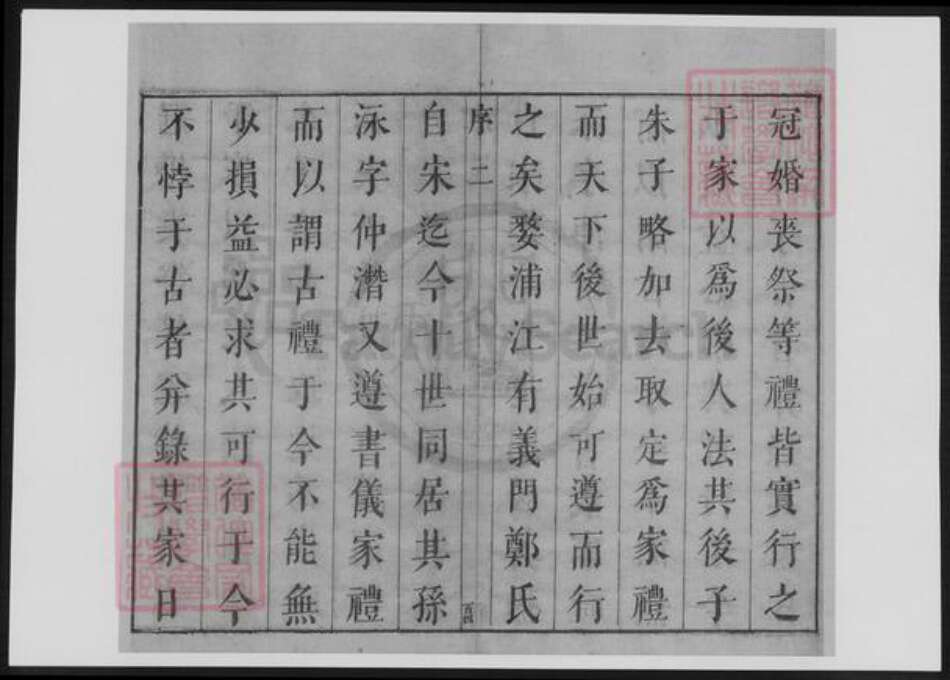 冠婚喪祭等禮皆實行之
于家以爲後人法其後子
朱子略加去取定爲家禮
而天下後世始可遵而行
之矣婺浦江有義門鄭氏
序 二
自宋迄今十世同居其孫
泳字仲濳又遵書儀家禮
而以謂古禮于今不能無
少損益必求其可行于今
不悖于古者并錄其家日